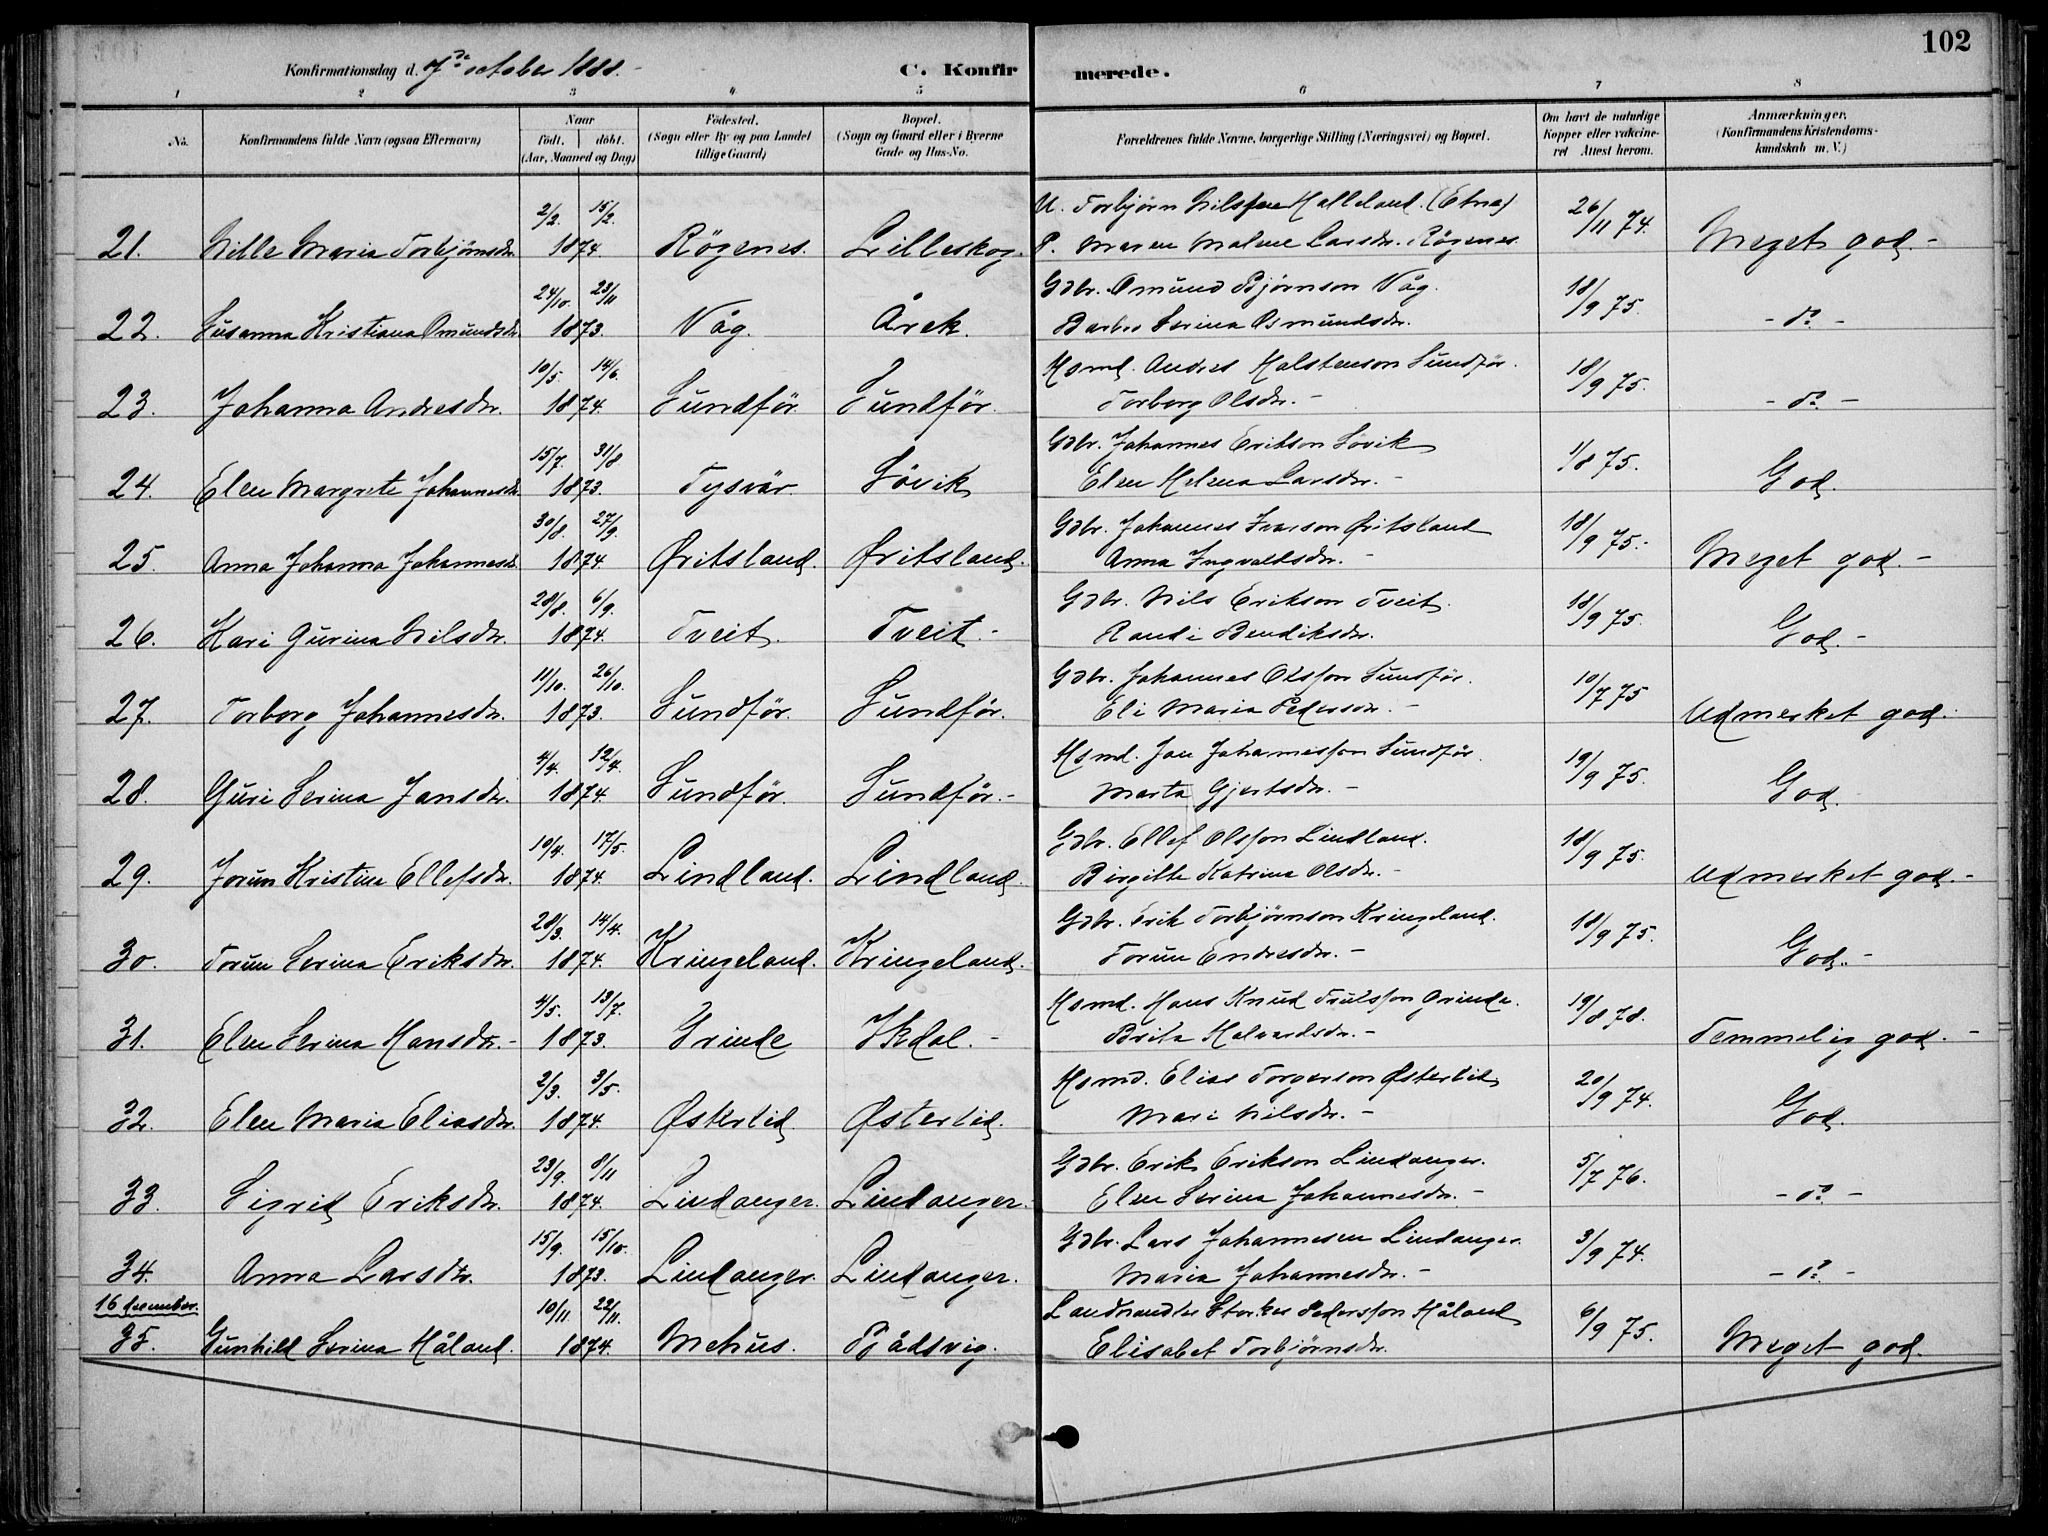 102
Konfirmationsdag d. 7de october 1888. C. Konfirmerede.
1 2 3 4 5 6 7 8
No. Konfirmandens fulde Navn (ogsaa Efternavn) Naar født. døbt. (Aar, Maaned og Dag) Fødested. (Sogn eller By og paa Landet tillige Gaard) Bopæl. (Sogn og Gaard eller i Byerne Gade og Hus-No. Forældrenes fulde Navne, borgerlige Stilling (Næringsvei) og Bopæl. Om havt de naturlige Kopper eller vakcineret Attest herom. Anmærkninger. (Konfirmandens Kristendomskundskab m. V.)
2/2. 15/2. U. Torbjørn Nilssen Halleland. (Etne) 26/11 74.
21. Nille Maria Torbjørnsdr. 1874. Røgenes. Lilleskog. P. Maren Malene Larsdr. Røgenes. Meget god. -
24/10. 23/11 Gdbr. Omund Bjørnson Våg. 18/9 75.
22. Susanna Kristiana Omundsdr. 1873. Våg. Årek. Barbro Serina Osmundsdr. - do -
10/5. 14/6. Hsmd. Andres Halstenson Sundför. 18/9 75.
23. Johanna Andresdr. 1874. Sundför. Sundför. Torborg Olsdr. - - do -
15/7. 31/8 Gdbr. Johannes Erikson Søvik 1/8 75.
24. Elen Margrete Johannesdr. 1873. Tysvär. Søvik Elen Helena Larsdr. - God.
30/8. 27/9. Gdbr. Johannes Ivarson Øritsland 18/9 75. -
25. Anna Johanna Johannesdr. 1874. Øritsland. Øritsland. Anna Ingvaldsdr. - Meget god. -
28/8. 6/9. Gdbr. Nils Erikson Tveit. 18/9 75.
26. Kari Gurina Nilsdr. 1874. Tveit. Tveit. - Randi Bendiksdr. God. -
11/10. 26/10. Gdbr. Johannes Olsson Sundför. 10/7 75
27. Torborg Johannesdr. 1873. Sundför. Sundför. Eli Maria Pedersdr. - Udmerket god.
4/4. 12/4. Hsmd. Jan Johannesson Sundför. 19/9 75.
28. Guri Serina Jansdr. 1874. Sundför. Sundför. - Marta Gjertsdr. - God.
19/4. 17/5. Gdbr. Ellef Olsson Lindland. 18/9 75.
29. Jorun Kristine Ellefsdr. 1874. Lindland. Lindland. Birgithe Katrina Olsdr. - Udmerket god. -
28/3. 14/4. Gdbr. Erik Torbjørnson Kringeland. 18/9 75.
30. Torun Serina Eriksdr. 1874. Kringeland. Kringeland. Torun Endresdr. - God. -
4/5. 13/7. Hsmd. Hans Knud Trulsson Grinde. 19/8 78.
31. Elen Serina Hansdr. - 1873. Grinde Ikdal. - Brita Halvardsdr. - Temmelig god. -
2/3. 3/5. Hsmd. Elias Torgerson Østerlid 20/9 74.
32. Elen Maria Eliasdr. 1874. Østerlid Østerlid. Mari Nilsdr. - God.
23/9. 8/11 Gdbr. Erik Erikson Lindanger. 5/7 76.
33. Sigrid Eriksdr. 1874. Lindanger. Lindanger. Elen Serina Johannesdr. - - do -
15/9. 15/10. Gdbr. Lars Johannesen Lindanger. 3/9 74.
34. Anna Larsdr. 1873. Lindanger. Lindanger. Maria Johannesdr. - - do -
16 december. 10/11. 22/11. Landhandler Storker Pedersson Håland 6/9 75.
35. Gunhild Serina Håland. 1874. Mehus. Bådsvig. Elisabet Torbjørnsdr. Meget god.